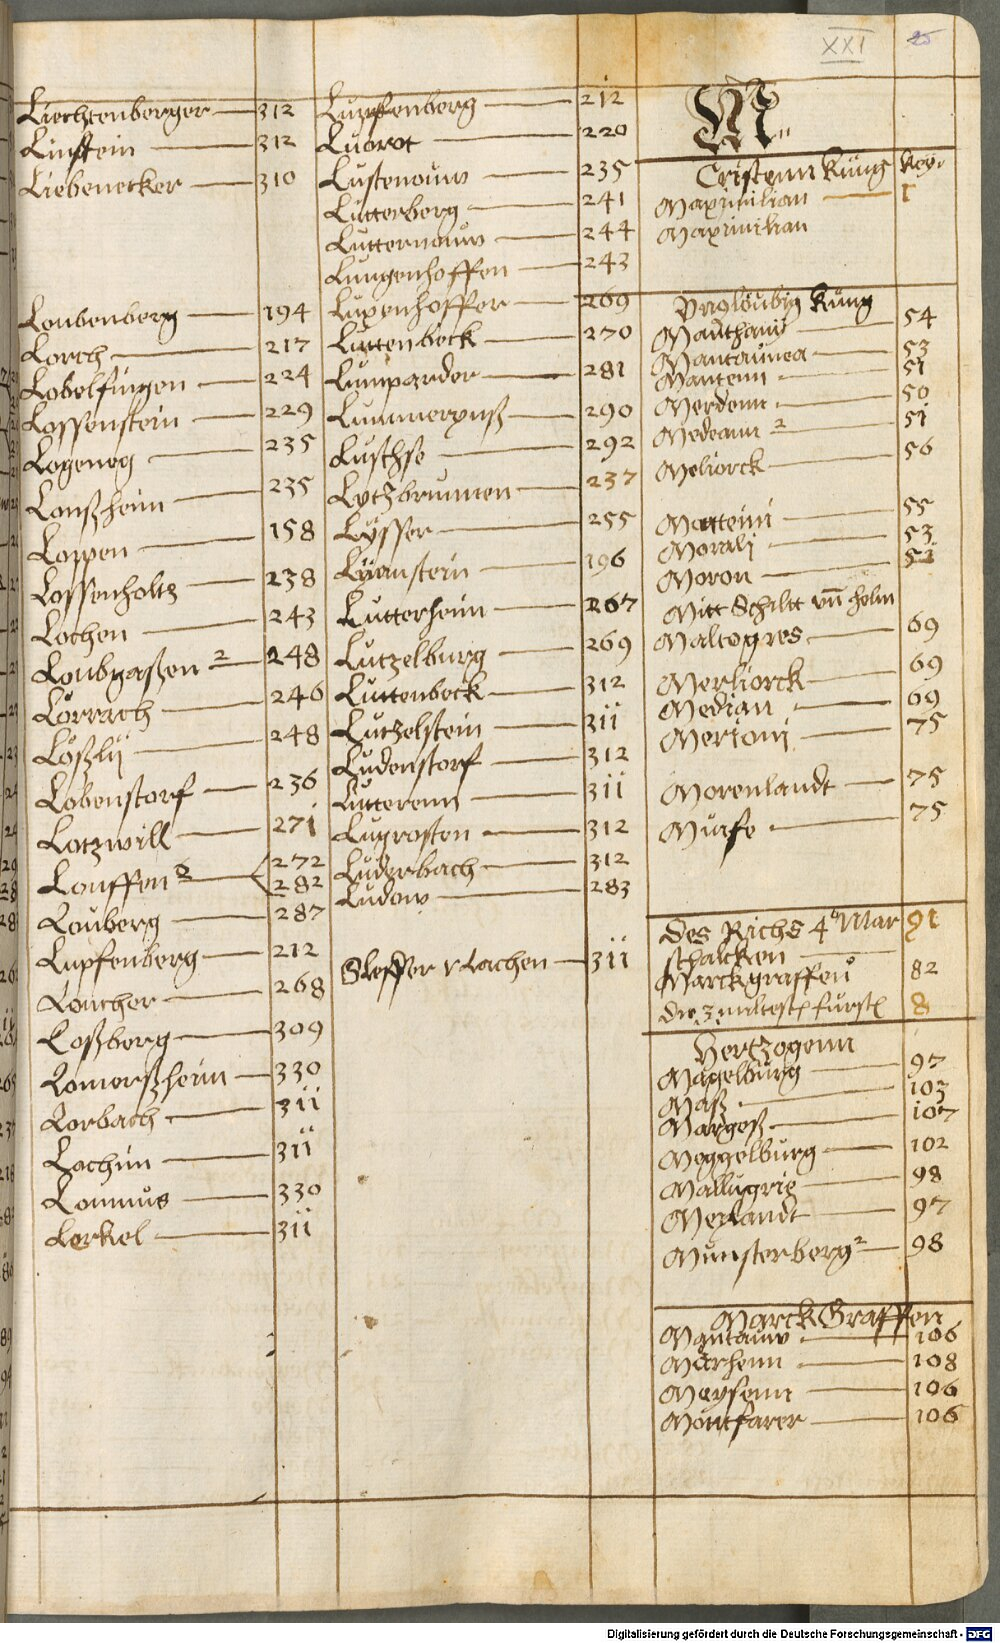 XXI 25
Liechtenberger 312
Linstein 312
Liebenecker 310
Loubenberg 194
Lorch 217
Lobelfingen 224
Lossenstein 229
Logeneg 235
Lonßheim 235
Loppen 158
Lossenholtz 238
Lochen 243
Loubgaßen 2 248
Lörrach 246
Lößlÿ 248
Lobenstorf 236
Lotzwill 271
Louffen 2 272
282
Louberg 287
Lupfenberg 212
Loucher 268
Loßberg 309
Lomerßheim 330
Lorbach 311
Lochim 311
Lommus 330
Lerkel 311
Lupfenberg 212
220
Lustenouw 235
Lutterberg 241
Lutternouw 244
Lungenhoffen 243
Luxenhoffer 269
Luttenbeck 270
Lumparder 281
290
Luschse 292
Lutzbrunnen 237
Lysser 255
Lÿanstein 196
Lutterheim 267
Lutzelburg 269
Luttenbeck 312
Lutzelstein 311
Ludenstorf 312
Lutterenn 311
Lugrosten 312
Luderbach 312
Ludow 283
Sleffer v Lachen 311
M
Cristenn Küng key.
Maximilian 1
Maximilian
Vngloubig Küng
Mauthaw 54
Mantaunea 53
Mantenn 51
Merdenn 50
Medeann 2 51
Meliorck 56
Matteini 55
Morali 53
Moron 52
Mitt Schiltt vnn helm
Maltogres 69
Merliorck 69
Median 69
Merioni 75
Morenlandt 75
Murse 75
Des Richs 4 Mar 91
schalcken
Marckgraffen 82
8
Hertzogenn
Magelburg 97
Maß 103
Margoß 107
Meggelburg 102
Mallugrie 98
Meylandt 97
Munsterberg 2 98
Marck Graffen
Mantauw 106
Märhenn 108
Meysenn 106
Montfarer 106
Digitalisierung gefördert durch die Deutsche Forschungsgemeinschaft - DFG